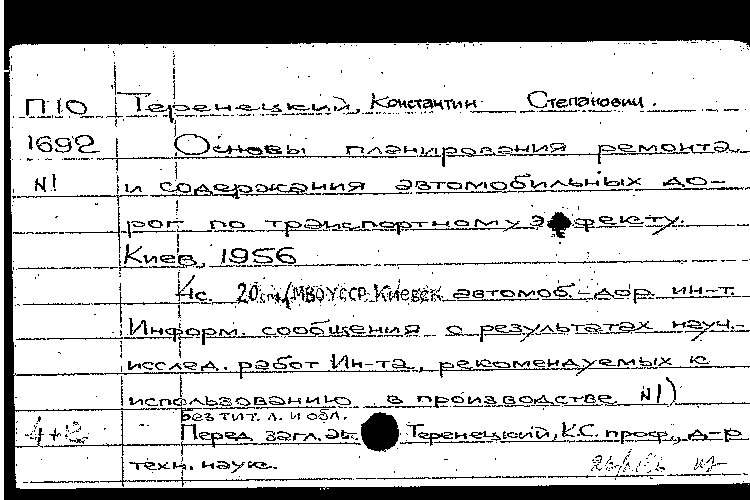 П10 Теренецкий, Константин Степанович.
1692 Основы планирования ремонта
N1 и содержания автомобильных до-
рог по транспортному эффекту.
Киев, 1956
4с. 20см (МВО УССР. Киевск автомоб.-дор. ин-т.
Информ. сообщения о результатах науч.-
исслед. работ Ин-та, рекомендуемых к
использованию в производстве N1)
Без тит. л. и обл.
Перед загл. авт. Теренецкий, К.С. проф., д-р
техн. наук.